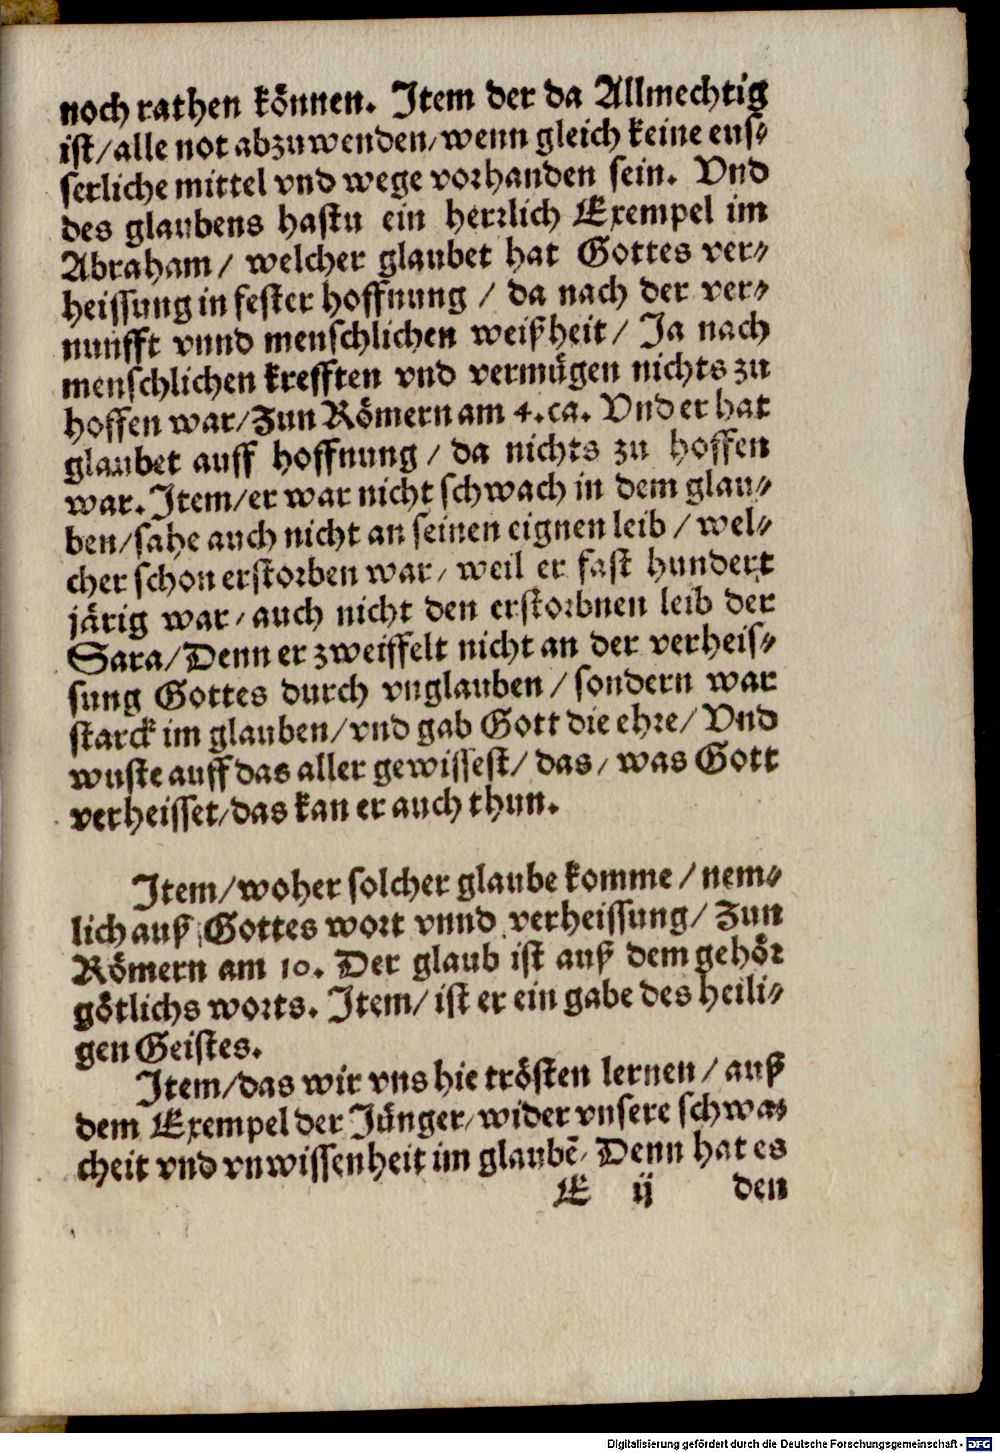 noch rathen können. Item der da Allmechtig
ist/alle not abzuwenden/wenn gleich keine eus⸗
serliche mittel vnd wege vorhanden sein. Vnd
des glaubens hastu ein herrlich Exempel im
Abraham/ welcher glaubet hat Gottes ver⸗
heissung in fester hoffnung / da nach der ver⸗
nunfft vnnd menschlichen weißheit/ Ja nach
menschlichen krefften vnd vermügen nichts zu
hoffen war/Zun Römern am 4.ca. Vnd er hat
glaubet auff hoffnung / da nichts zu hoffen
war. Item/er war nicht schwach in dem glau⸗
ben/sahe auch nicht an seinen eignen leib / wel⸗
cher schon erstorben war/ weil er fast hundert
järig war/ auch nicht den erstorbnen leib der
Sara/Denn er zweiffelt nicht an der verheis⸗
sung Gottes durch vnglauben/ sondern war
starck im glauben/vnd gab Gott die ehre/ Vnd
wuste auff das aller gewissest/ das/ was Gott
verheisset/das kan er auch thun.
Item/woher solcher glaube komme / nem⸗
lich auß Gottes wort vnnd verheissung/ Zun
Römern am 10. Der glaub ist auß dem gehör
götlichs worts. Item/ ist er ein gabe des heili⸗
gen Geistes.
Item/das wir vns hie trösten lernen / auß
dem Exempel der Jünger/wider vnsere schwa⸗
cheit vnd vnwissenheit im glaubē/ Denn hat es
E ij den
Digitalisierung gefördert durch die Deutsche Forschungsgemeinschaft - DFG